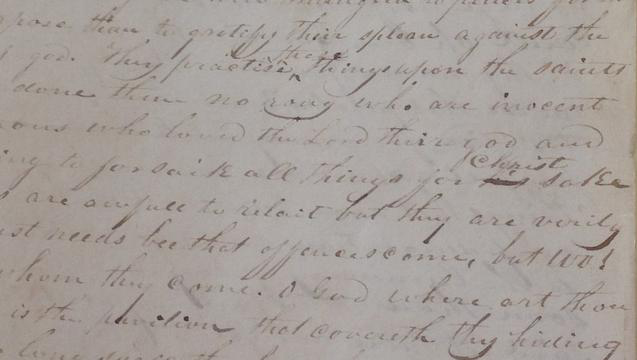 pose than to gratify thier spleen against the
god. they practise these things upon the saints
done them no rong who are inocent
ous who loved the Lord thier god and
ing to forsaik all things for Christ sake
are awfull to relait but they are verily
ust needs bee that offences come, but WO!
whom they come. O God where art thou
is the pavilion that covereth thy hiding